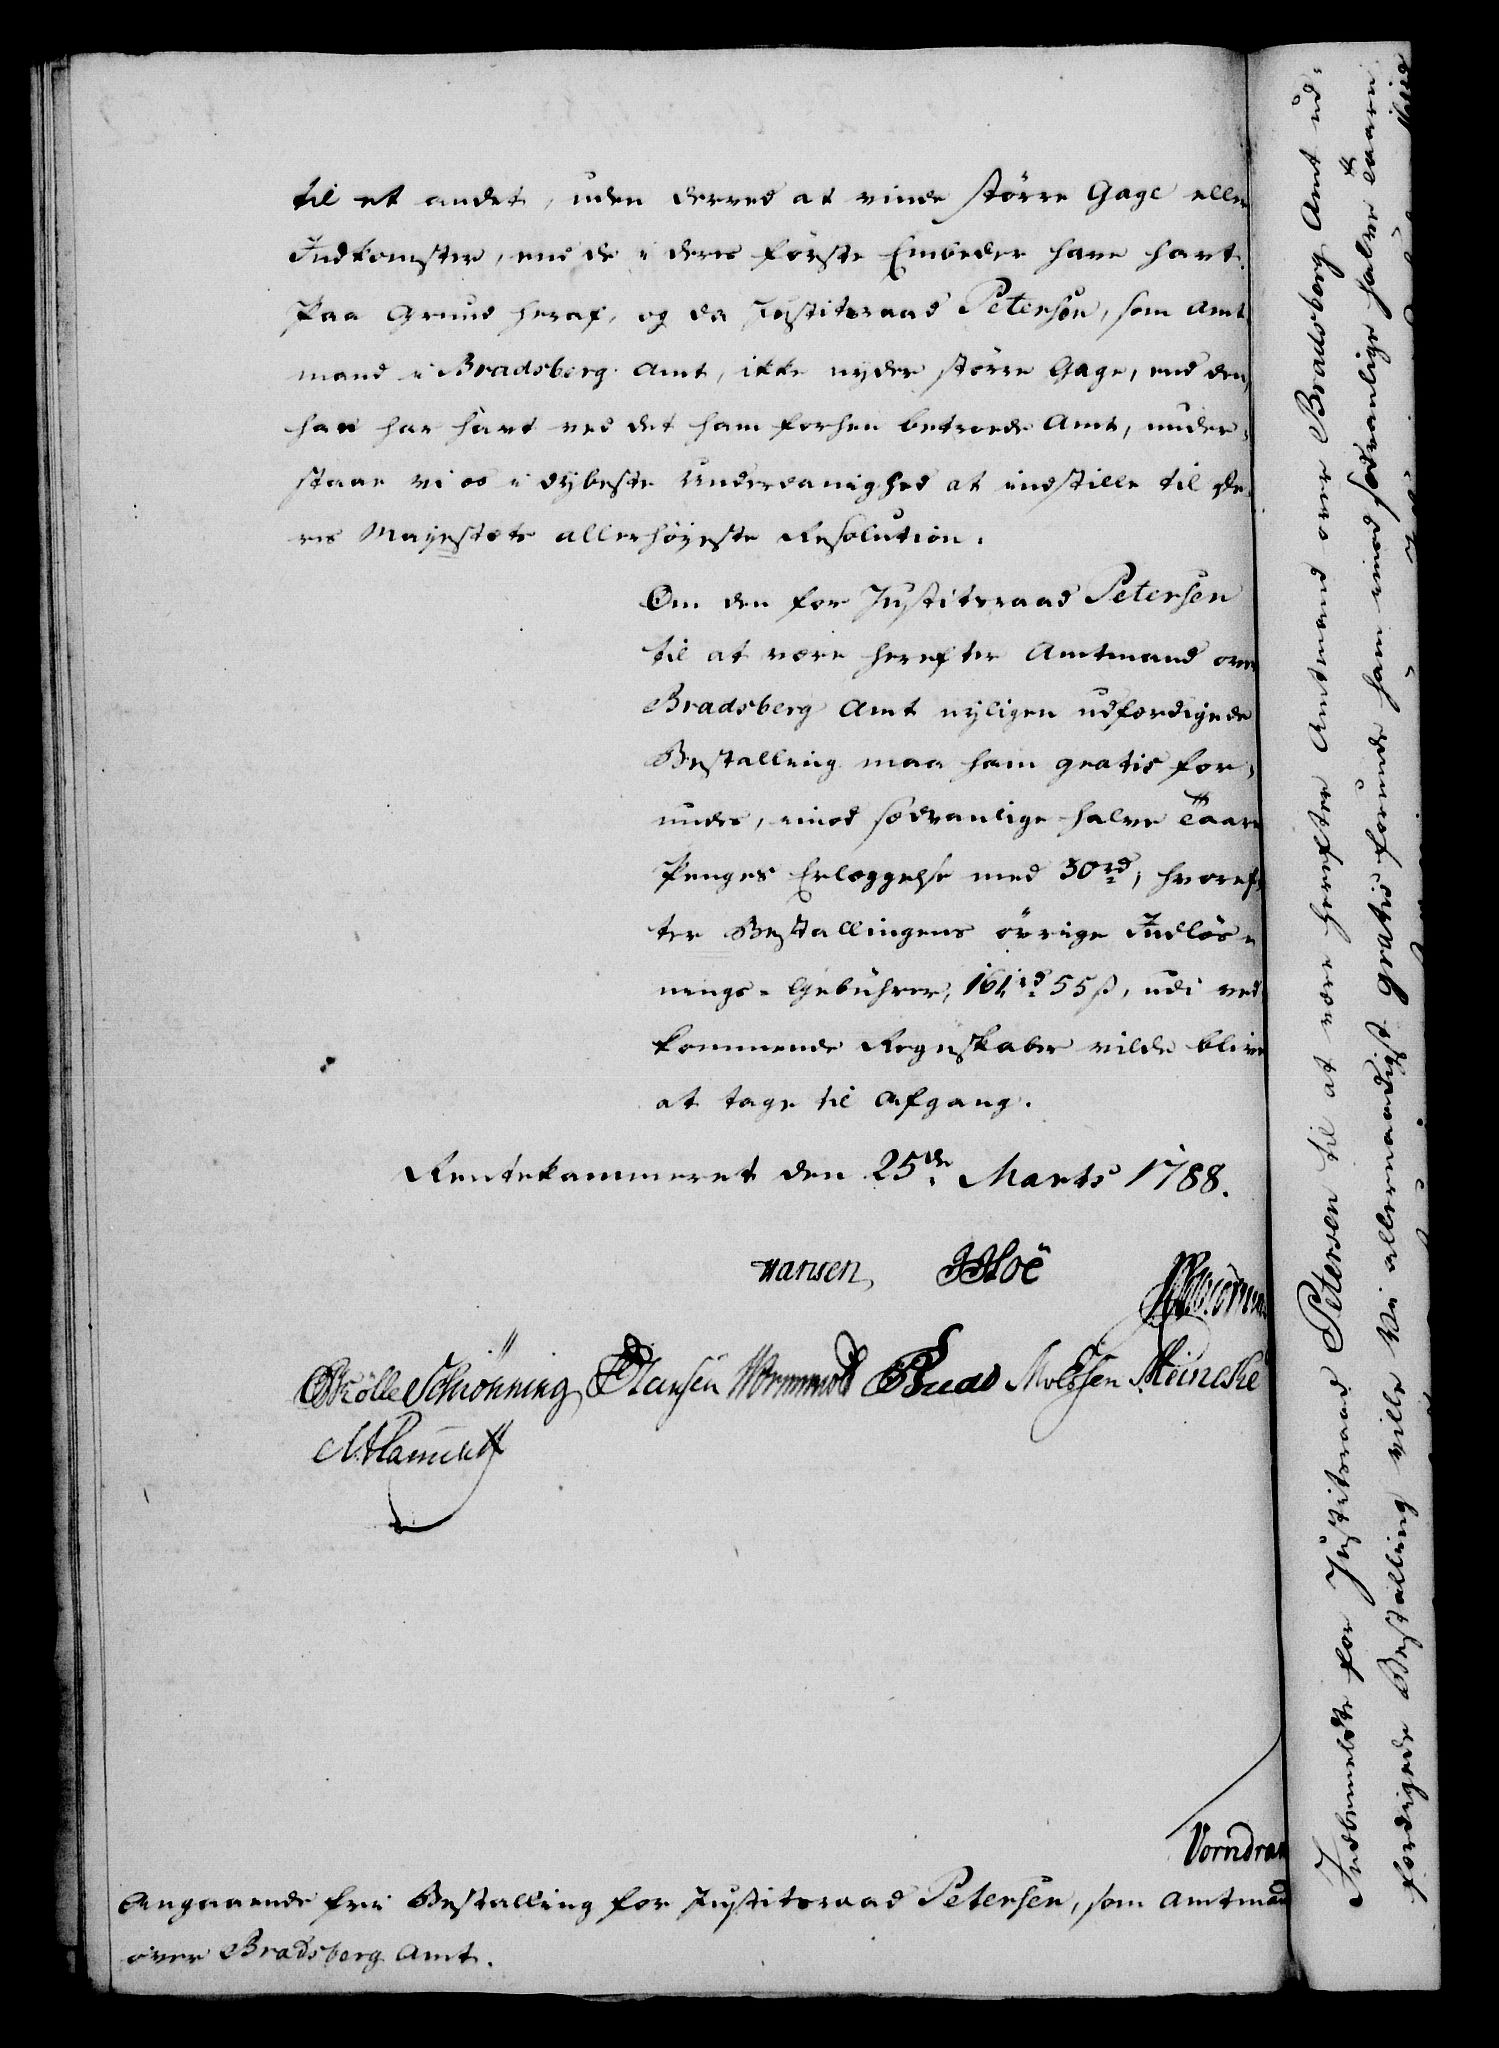 til et andet, uden derved at vinde større Gage eller
Indkomster, end de i deres første Embeder have havt.
Paa Grund heraf, og da Justitsraad Petersen, som Amt-
mand i Bradsberg Amt, ikke nyder større Gage, end den,
han har havt ved det ham forhen betroede Amt, under-
staae vi os i dybeste Underdanighed at indstille til De-
res Majestæts allerhøyeste Resolution.
Om den for Justitsraad Petersen
til at være herefter Amtmand over
Bradsberg Amt nyligen udfærdigede
Bestalling maa ham gratis for-
undes, imod sædvanlige halve
Penges Erlæggelse med 30 rd, hvoref-
ter Bestallingens øvrige Indløs-
nings-Gebührer, 161 rd 55 ß, udi ved-
kommende Regnskaber vilde blive
at tage til Afgang.
Rentekammeret den 25de Marts 1788.
Hansen, Hoë
Schiønning Hansen Wormskiold
Vorndran
Angaaende frie Bestalling for Justitsraad Petersen, som Amtmand
over Bradsberg Amt.
Indbemeldte for Justitsraad Petersen til at være herefter Amtmand over Bradsberg Amt ud-
færdigede Bestalling ville Vi allernaadigst gratis forunde ham imod sædvanlige halve